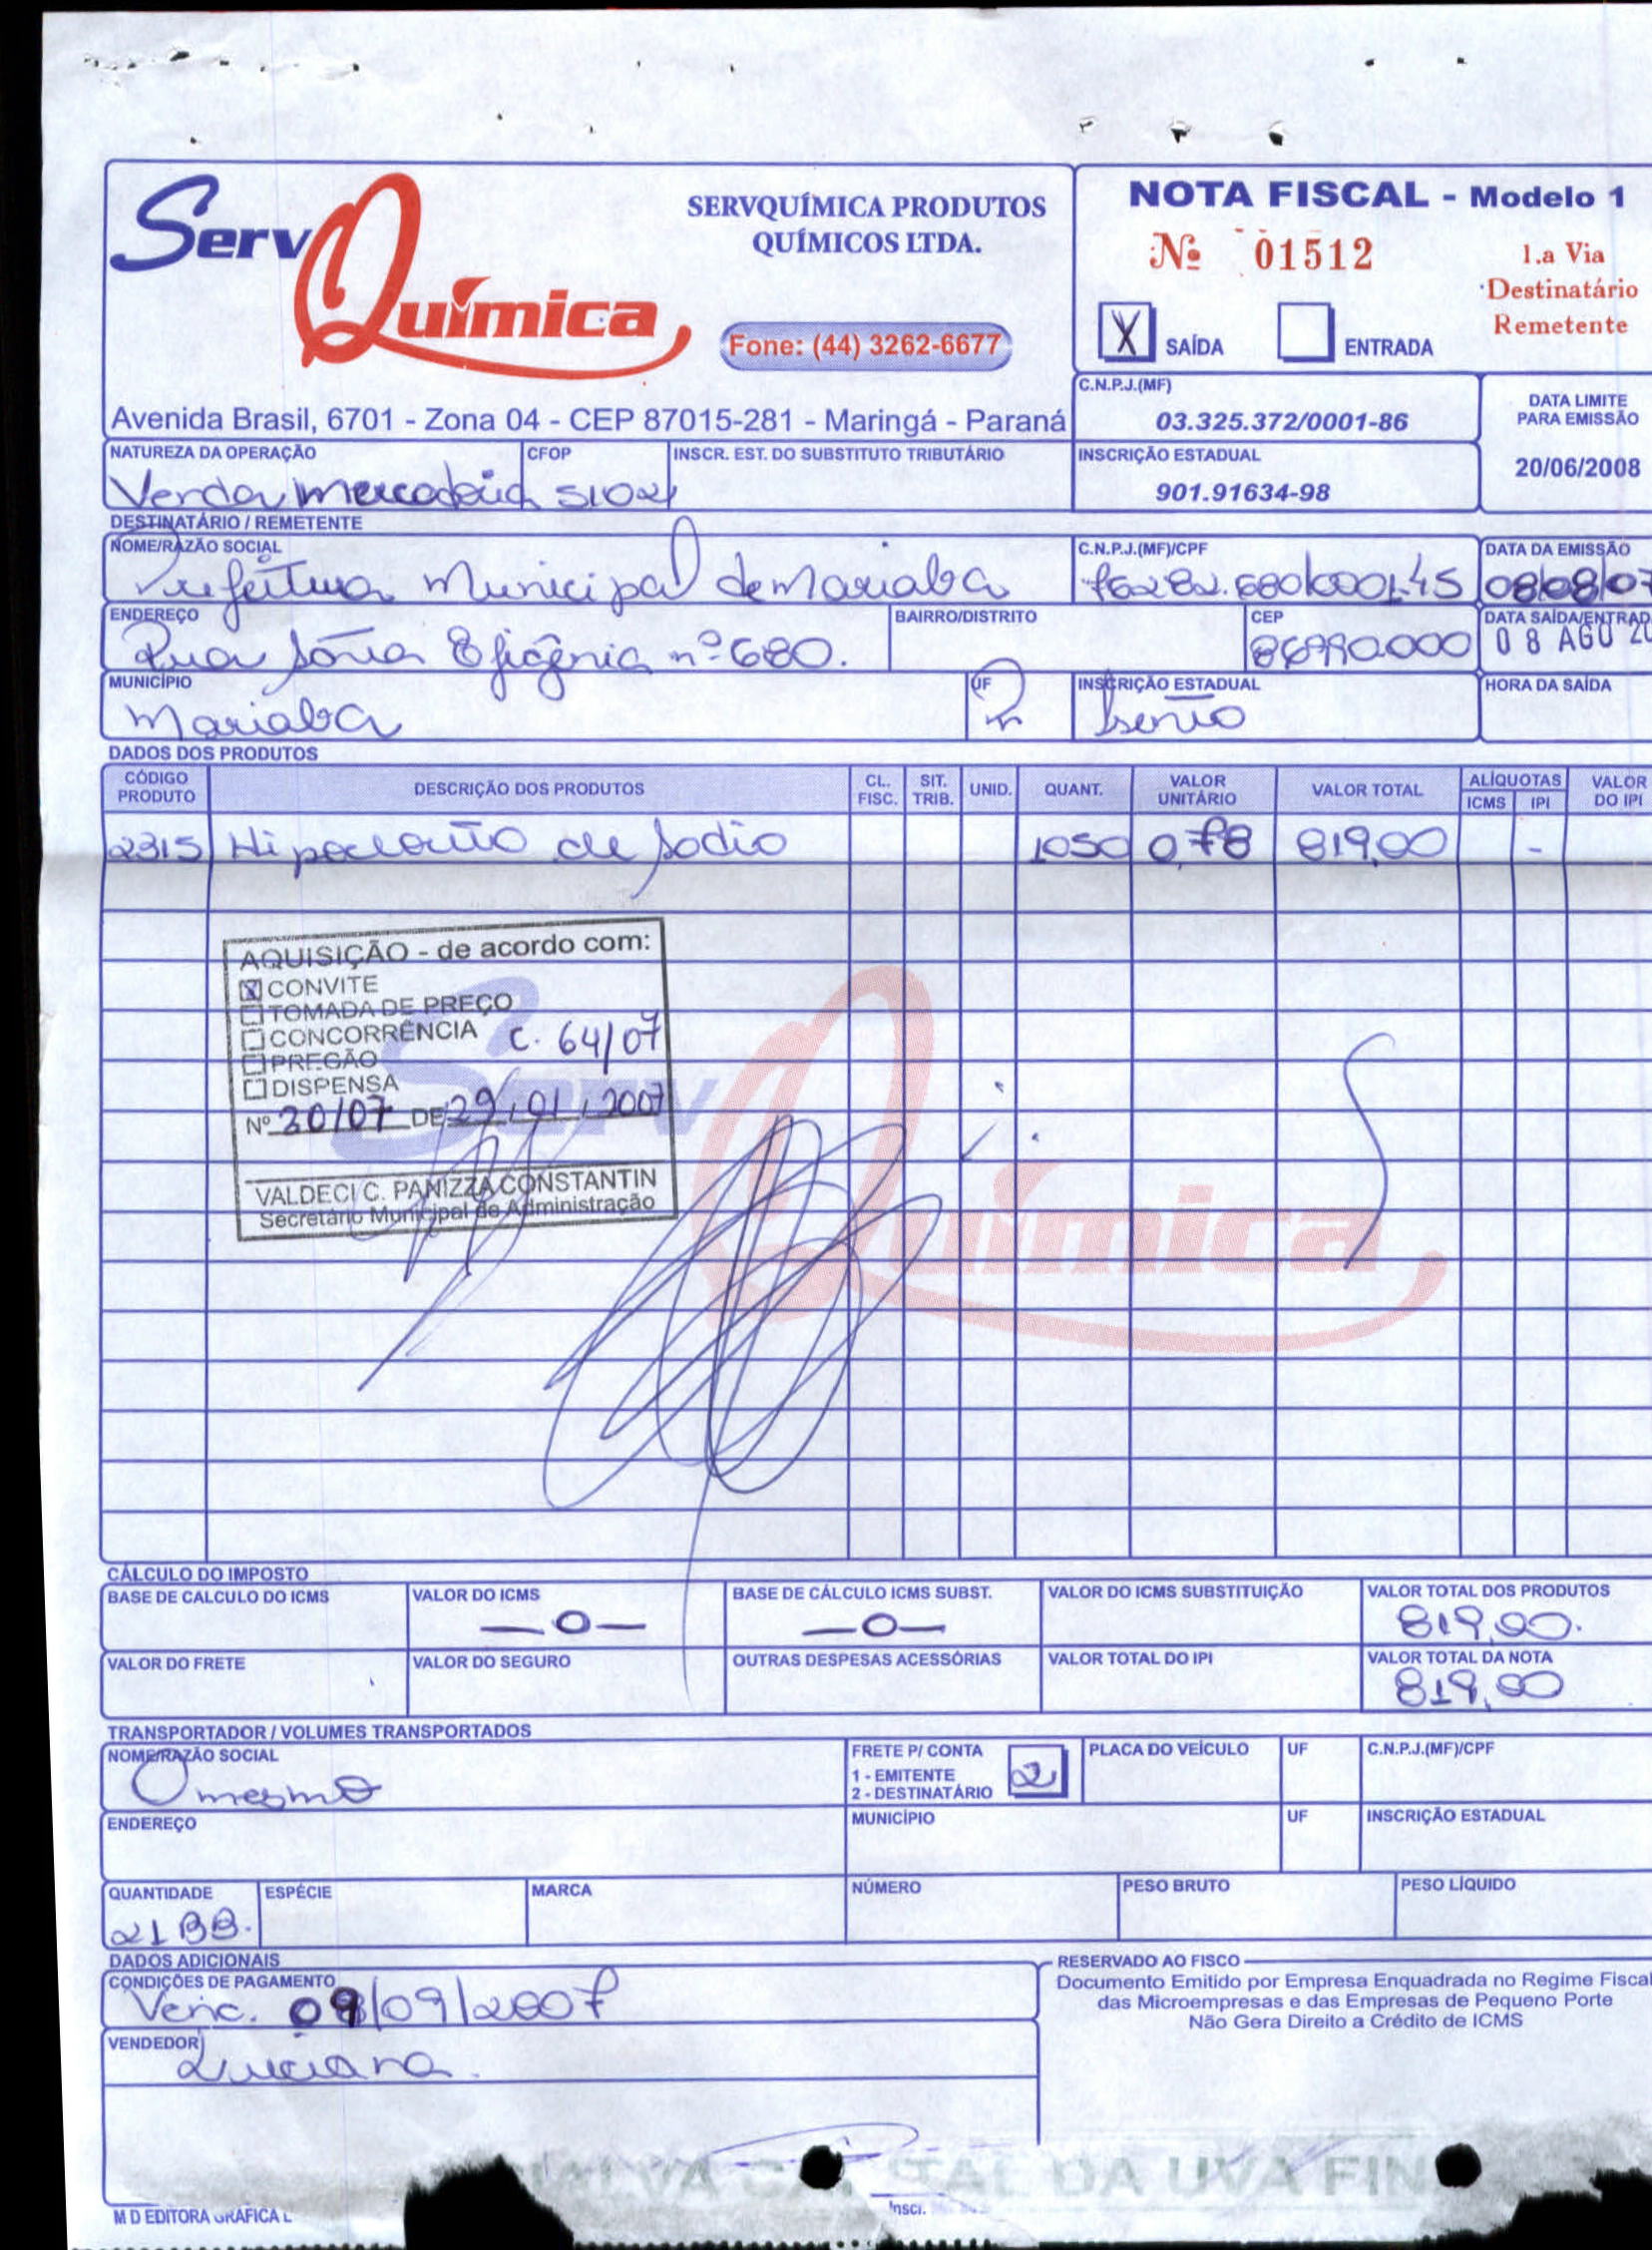 Serv Química
SERVQUÍMICA PRODUTOS
QUÍMICOS LTDA.
Fone: (44) 3262-6677
Avenida Brasil, 6701 - Zona 04 - CEP 87015-281 - Maringá - Paraná
NOTA FISCAL - Modelo 1
Nº 01512
1.a Via
Destinatário
Remetente
X SAÍDA ENTRADA
C.N.P.J.(MF)
03.325.372/0001-86
DATA LIMITE
PARA EMISSÃO
20/06/2008
INSCRIÇÃO ESTADUAL
901.91634-98
NATUREZA DA OPERAÇÃO CFOP INSCR. EST. DO SUBSTITUTO TRIBUTÁRIO
Venda mercadoria 5102
DESTINATÁRIO / REMETENTE
NOME/RAZÃO SOCIAL C.N.P.J.(MF)/CPF DATA DA EMISSÃO
Prefeitura Municipal de Marialva 76282.680/0001-45 08/08/07
ENDEREÇO BAIRRO/DISTRITO CEP DATA SAÍDA/ENTRAD
Rua Santa Efigênia nº 680. 86990.000 08 AGO 20
MUNICÍPIO UF INSCRIÇÃO ESTADUAL HORA DA SAÍDA
Marialva Pr Isento
DADOS DOS PRODUTOS
CÓDIGO PRODUTO DESCRIÇÃO DOS PRODUTOS CL. FISC. SIT. TRIB. UNID. QUANT. VALOR UNITÁRIO VALOR TOTAL ALÍQUOTAS ICMS IPI VALOR DO IPI
2315 Hipoclorito de Sodio 1050 0,78 819,00 -
AQUISIÇÃO - de acordo com:
X CONVITE
TOMADA DE PREÇO
CONCORRÊNCIA C. 64/07
PREGÃO
DISPENSA
Nº 30/07 DE 29/01/2007
VALDECI C. PANIZZA CONSTANTIN
Secretário Municipal de Administração
Serv Química
CÁLCULO DO IMPOSTO
BASE DE CALCULO DO ICMS VALOR DO ICMS BASE DE CÁLCULO ICMS SUBST. VALOR DO ICMS SUBSTITUIÇÃO VALOR TOTAL DOS PRODUTOS
—0— —0— 819,00.
VALOR DO FRETE VALOR DO SEGURO OUTRAS DESPESAS ACESSÓRIAS VALOR TOTAL DO IPI VALOR TOTAL DA NOTA
819,00
TRANSPORTADOR / VOLUMES TRANSPORTADOS
NOME/RAZÃO SOCIAL FRETE P/ CONTA PLACA DO VEÍCULO UF C.N.P.J.(MF)/CPF
O mesmo 1 - EMITENTE
2 - DESTINATÁRIO 2
ENDEREÇO MUNICÍPIO UF INSCRIÇÃO ESTADUAL
QUANTIDADE ESPÉCIE MARCA NÚMERO PESO BRUTO PESO LÍQUIDO
21 BB.
DADOS ADICIONAIS
CONDIÇÕES DE PAGAMENTO
Venc. 09/09/2007
VENDEDOR
Luciana.
RESERVADO AO FISCO
Documento Emitido por Empresa Enquadrada no Regime Fiscal
das Microempresas e das Empresas de Pequeno Porte
Não Gera Direito a Crédito de ICMS
DA UVA FIN
M D EDITORA GRÁFICA L
Insci.